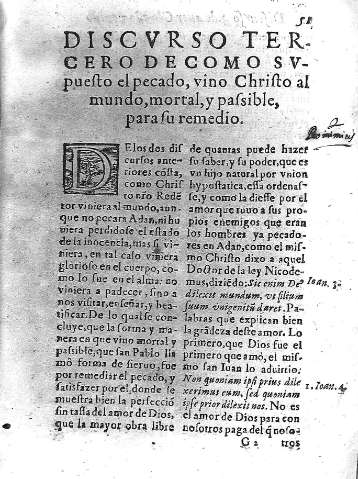 51
DISCVRSO TER-
CERO DE COMO SV-
puesto el pecado, vino Christo al
mundo, mortal, y passible,
para su remedio.
DElos dos dis
cursos ante-
riores cōsta,
como Chris
to nr̃o Redē
tor viniera al mundo, aun-
que no pecara Adan, ni hu
uiera perdidose el estado
de la inocencia, mas si vi-
niera, en tal caso viniera
glorioso en el cuerpo, co-
mo lo fue en el alma: no
viniera a padecer, sino a
nos visitar, enseñar, y bea-
tificar. De lo qual se con-
cluye, que la forma y ma-
nera en que vino mortal y
passible, que san Pablo lla
mò forma de sieruo, fue
por remediar el pecado, y
satisfazer por el, donde se
muestra bien la perfecciō
sin tassa del amor de Dios,
que la mayor obra libre
de quantas puede hazer
su saber, y su poder, que es
vn hijo natural por vnion
hypostatica, essa ordenas-
se, y como la diesse por el
amor que tuuo a sus pro-
pios enemigos que eran
los hombres ya pecado-
res en Adan, como el mis-
mo Christo dixo a aquel
Doctor de la ley Nicode-
mus, diziēdo: Sic enim De⁹
dilexit mundum, vt filium
suum vnigenitū daret. Pa-
labras que explican bien
la grādeza deste amor. Lo
primero, que Dios fue el
primero que amò, el mis-
mo san Iuan lo aduirtio:
Non quoniam ipsi prius dile
xerimus eum, sed quoniam
ipse prior dilexit nos. No es
el amor de Dios para con
nosotros paga del q̄ noso-
Ioan. 3.
1. Ioan. 4.
G 2
tros